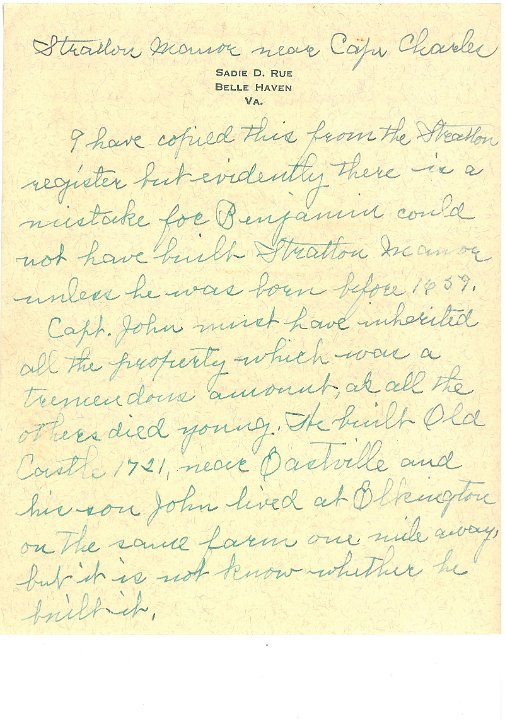 Stratton Manor near Cape Charles
SADIE D. RUE
BELLE HAVEN
VA.
I have copied this from the Stratton
register but evidently there is a
mistake for Benjamin could
not have built Stratton Manor
unless he was born before 1659.
Capt. John must have inherited
all the property which was a
tremendous amount, as all the
others died young. He built Old
Castle 1721, near Eastville and
his son John lived at Elkington
on the same farm one mile away,
but it is not know whether he
built it.